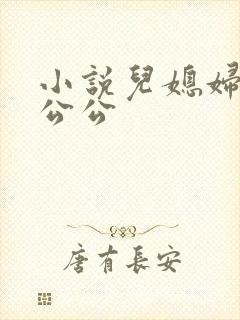 小說兒媳婦
公公
唐有長安